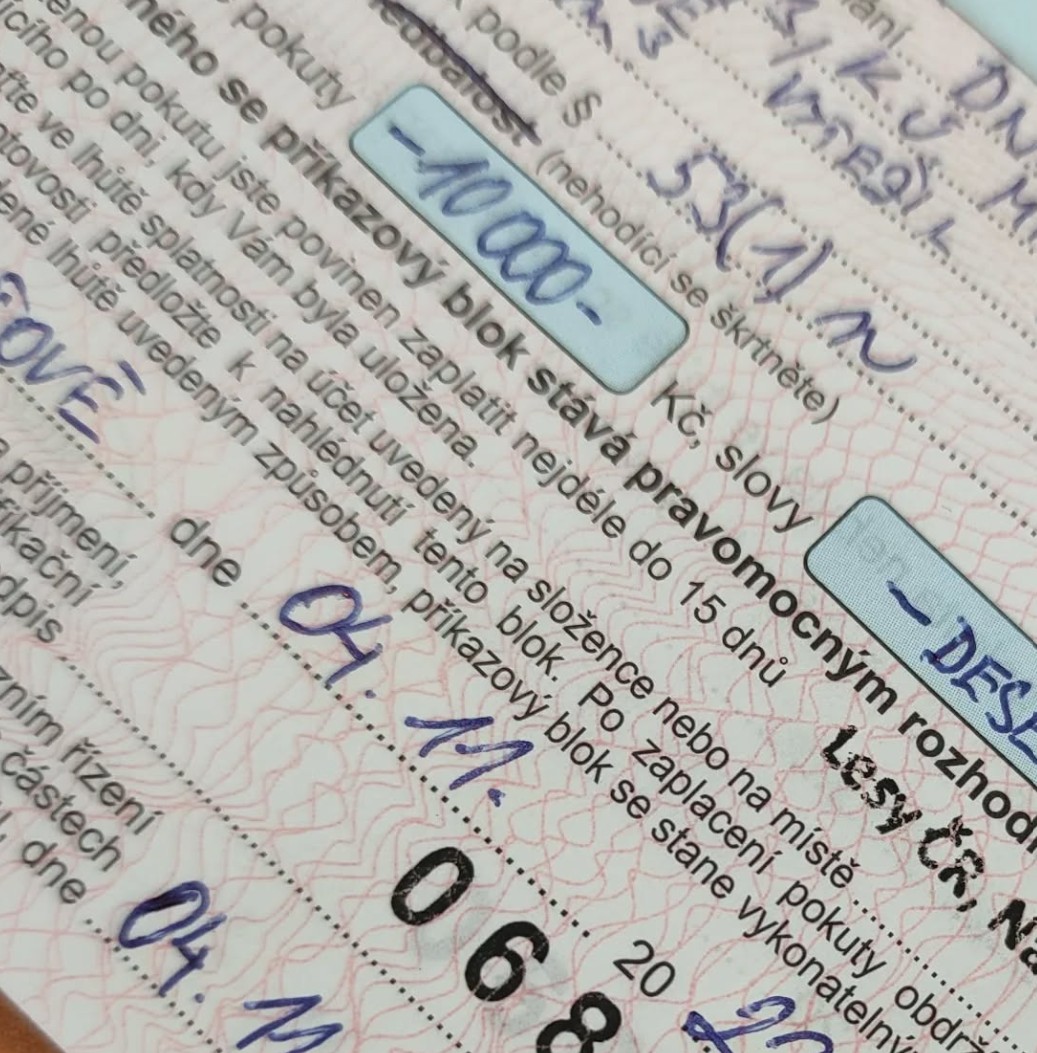 ání DN
K.Ú M
VMEŠK
podle § 53(1) n
edbalost (nehodící se škrtněte)
pokuty -10 000- Kč, slovy - DESE
ného se příkazový blok stává pravomocným rozhod
enou pokutu jste povinen zaplatit nejdéle do 15 dnů
cího po dni, kdy Vám byla uložena. Lesy ČR, Na
ťte ve lhůtě splatnosti na účet uvedený na složence nebo na místě
otovosti předložte k nahlédnutí tento blok. Po zaplacení pokuty obdrž
ené lhůtě uvedeným způsobem, příkazový blok se stane vykonatelný
OVĚ dne 04. 11. 20 20
příjmení,
fikační
dpis
068
zním řízení
částech
dne 04. 11